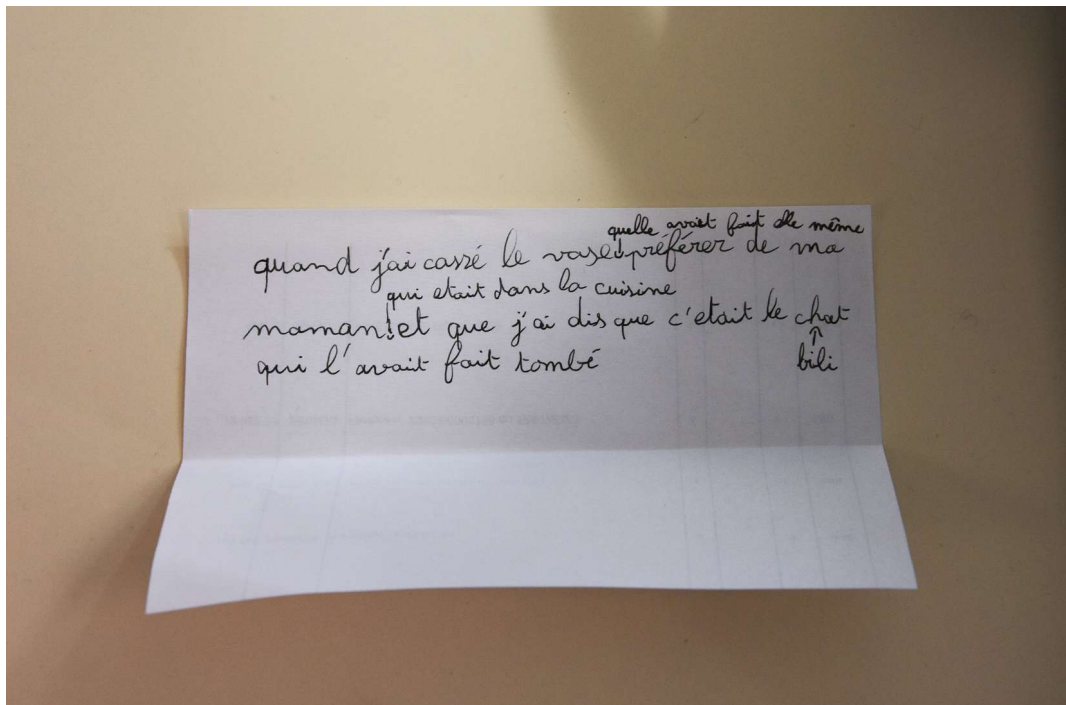 quelle avait fait elle même
quand j'ai cassé le vase préférer de ma
qui etait dans la cuisine
maman et que j'ai dis que c'etait le chat
qui l'avait fait tombé
bili